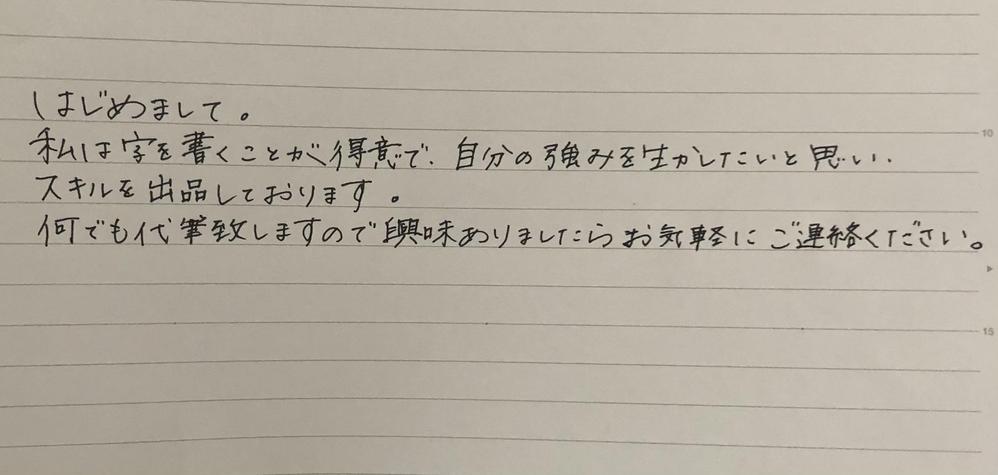 はじめまして。
私は字を書くことが得意で、自分の強みを生かしたいと思い、
スキルを出品しております。
何でも代筆致しますので興味ありましたらお気軽にご連絡ください。
10
15